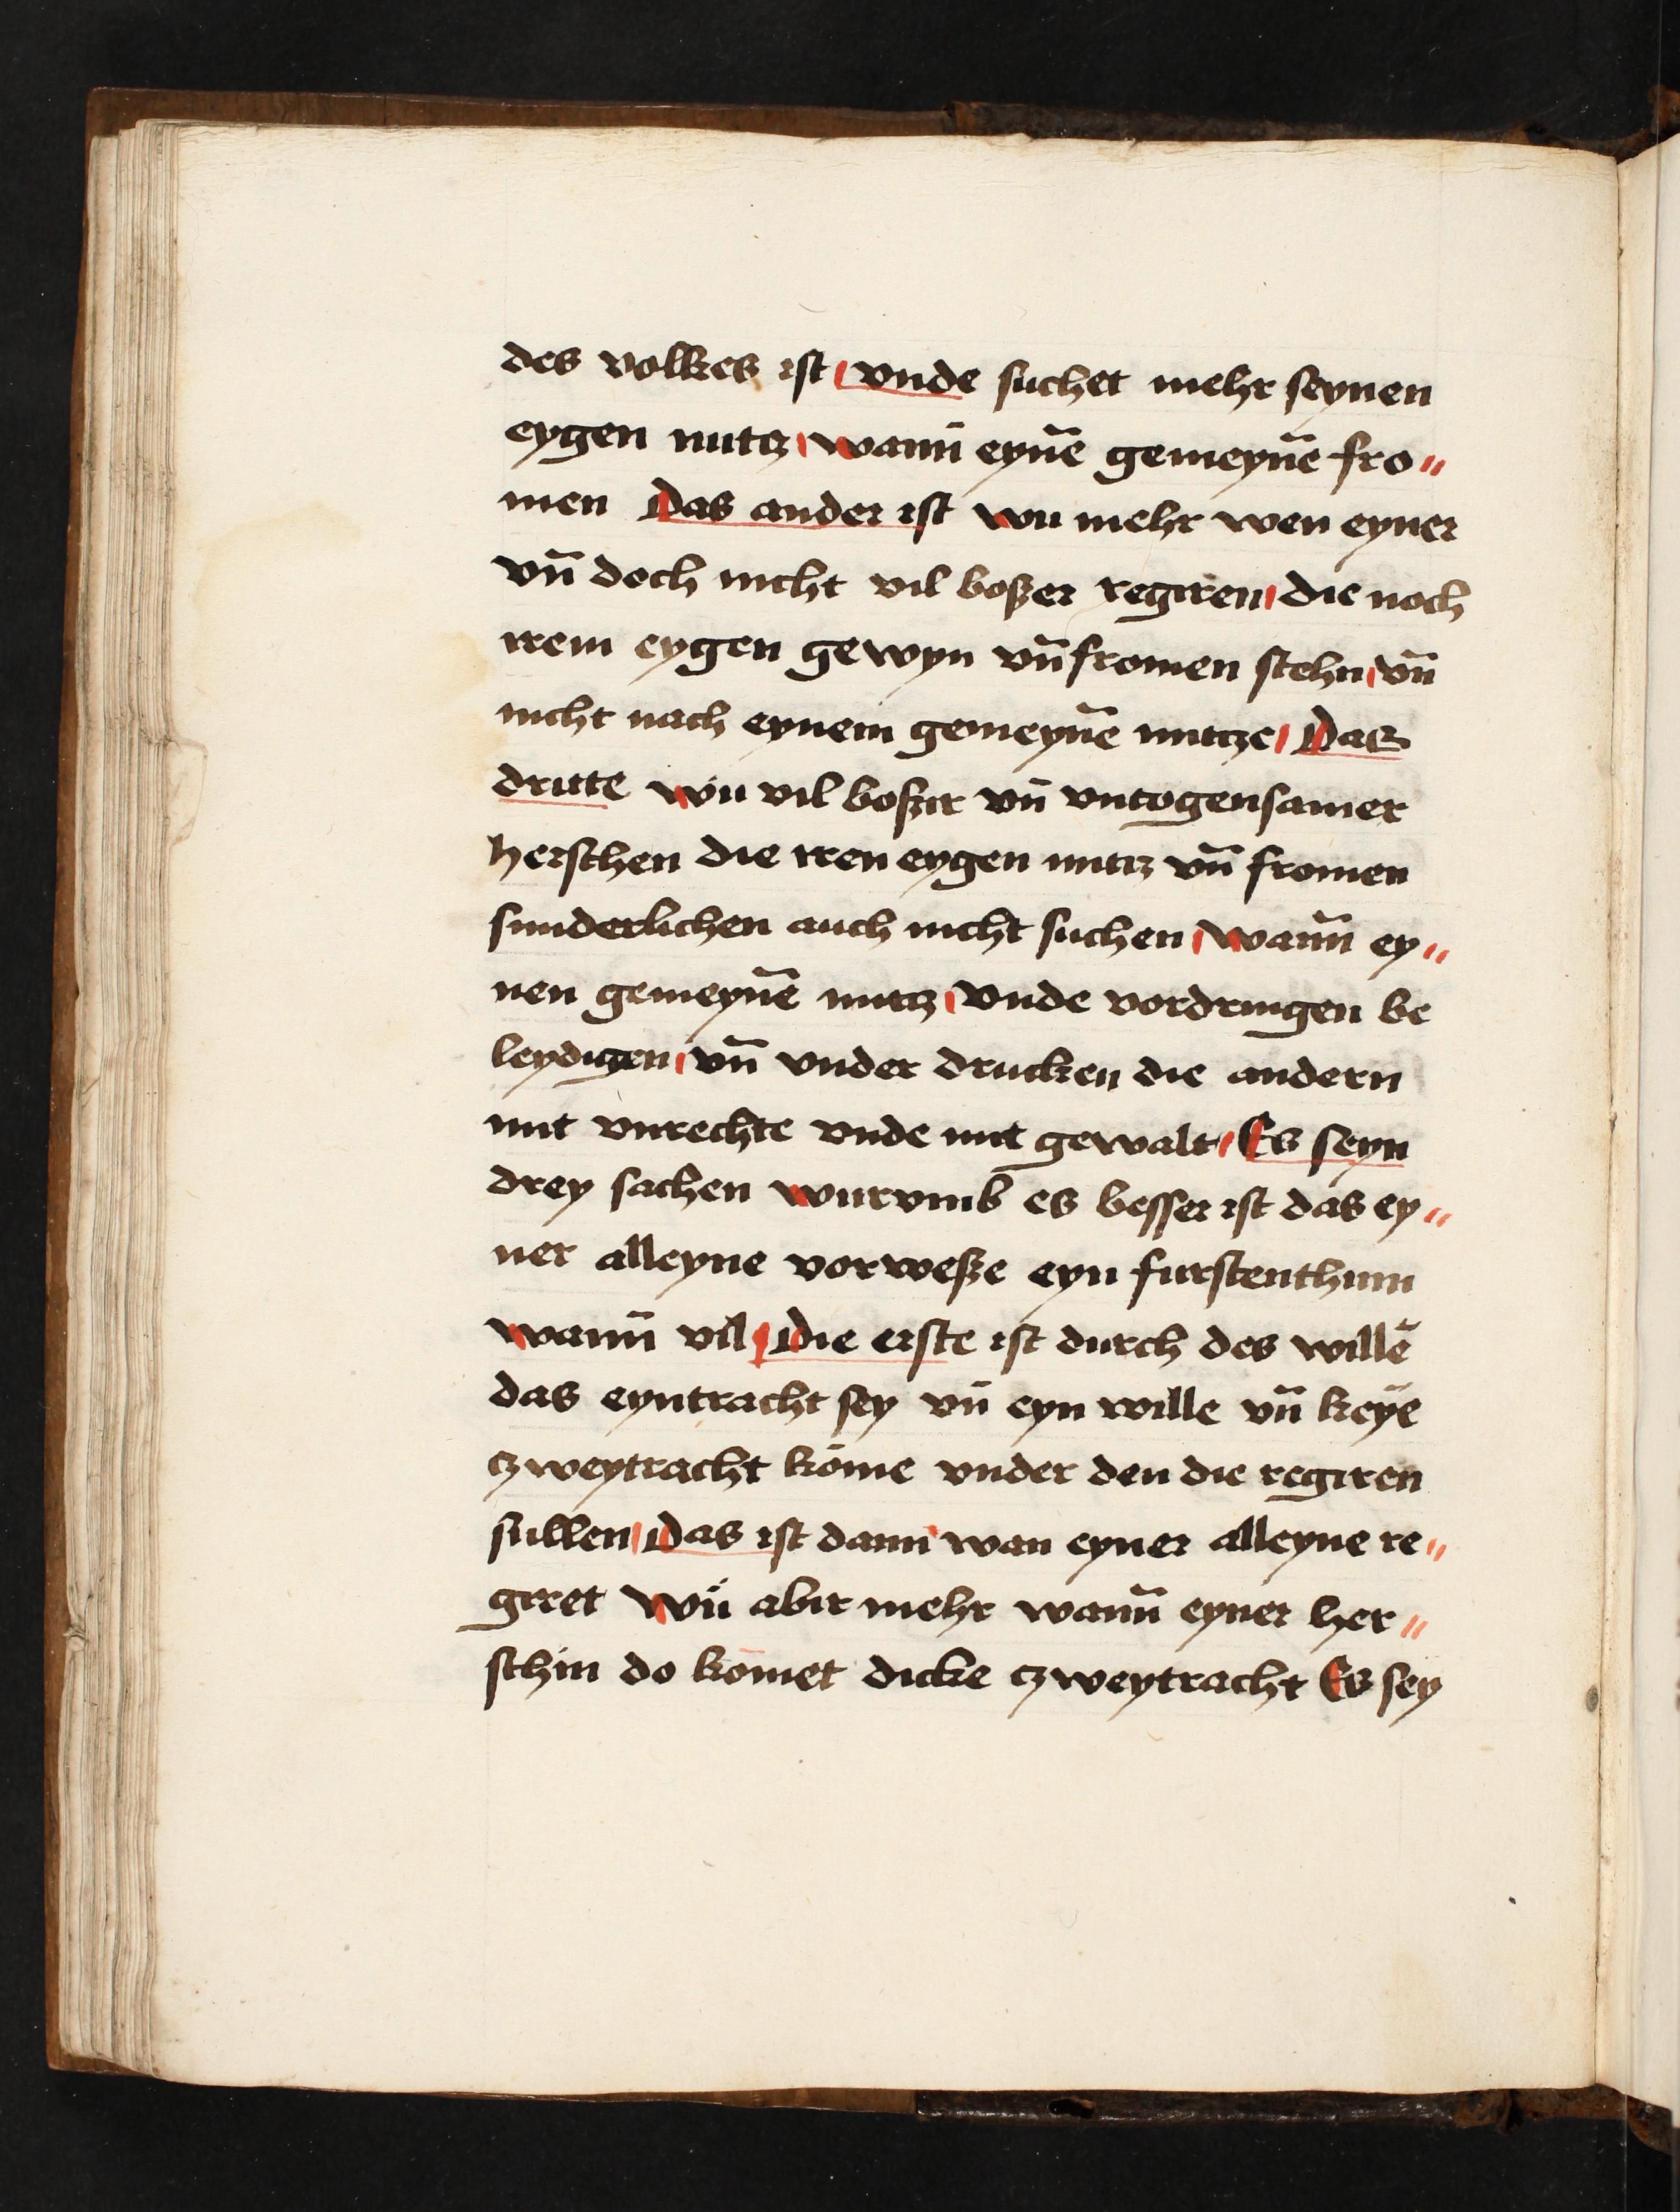 des volkes ist / vnde suchet mehr seynen
eygen nutcz / wann̄ eynē gemeynē fro〃
men Das ander ist wu mehr wen eyner
vn̄ doch nicht vil boßer regiren / die noch
irem eygen gewyn vn̄ fromen stehn / vn̄
nicht nach eynem gemeynē nutcze / Das
dritte wu vil boßir vn̄ vntogensamer
herschen die iren eygen nutcz vn̄ fromen
sunderlichen auch nicht suchen / wann̄ ey〃
nen gemeynē nutcz / Vnde vordringen be
leydigen / vn̄ vnder drucken die andern
mit vnrechte vnde mit gewalt / Es seyn
drey sachen wurvmb es besser ist das ey〃
ner alleyne vorweße eyn furstenthum
wann̄ vil / Die erste ist durch des willē
das eyntracht sey vn̄ eyn wille vn̄ keyē
czweytracht kōme vnder den die regiren
sullen / Das ist dann wan eyner alleyne re〃
giret wu abir mehr wann̄ eyner her〃
schin do kōmet dicke czweytracht Es sey